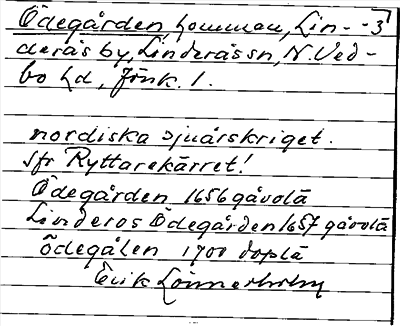 Ödegården, hommau, Lin- -3
derås by, Linderås sn, N. Ved-
bo hd, Jönk. l.
nordiska sjuårskriget.
Jfr Ryttarekärret!
Ödegården 1656 gåvolä
Linderos Ödegården 1657 gåvolä
Ödegålen 1700 doplä
Erik Lönnerholm